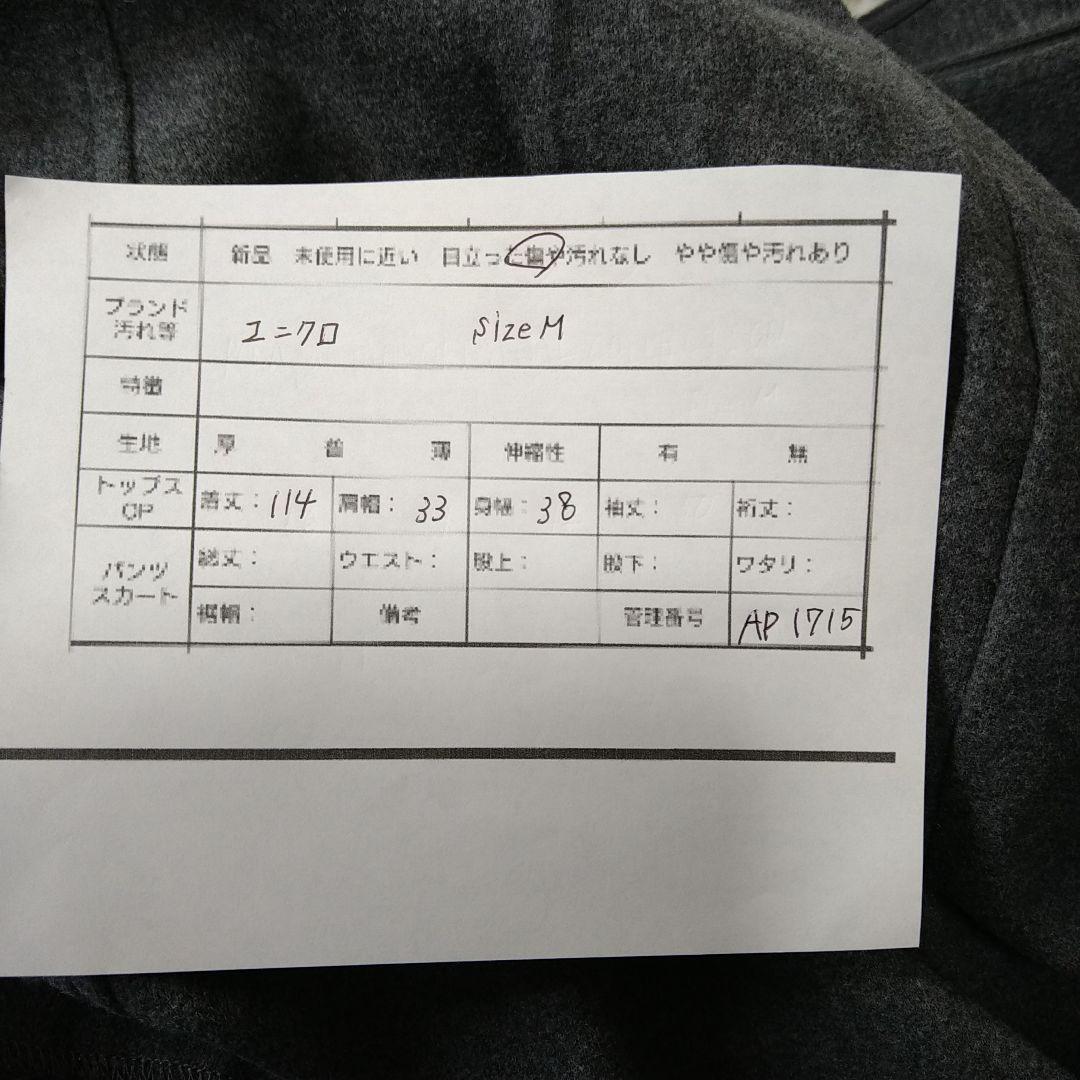 状態 新品 未使用に近い 目立った傷や汚れなし やや傷や汚れあり
ブランド
汚れ等 ユニクロ sizeM
特徴
生地 厚 普 薄 伸縮性 有 無
トップス
OP 着丈：114 肩幅：33 身幅：38 袖丈： 裄丈：
パンツ
スカート 総丈： ウエスト： 股上： 股下： ワタリ：
裾幅： 備考 管理番号 AP1715